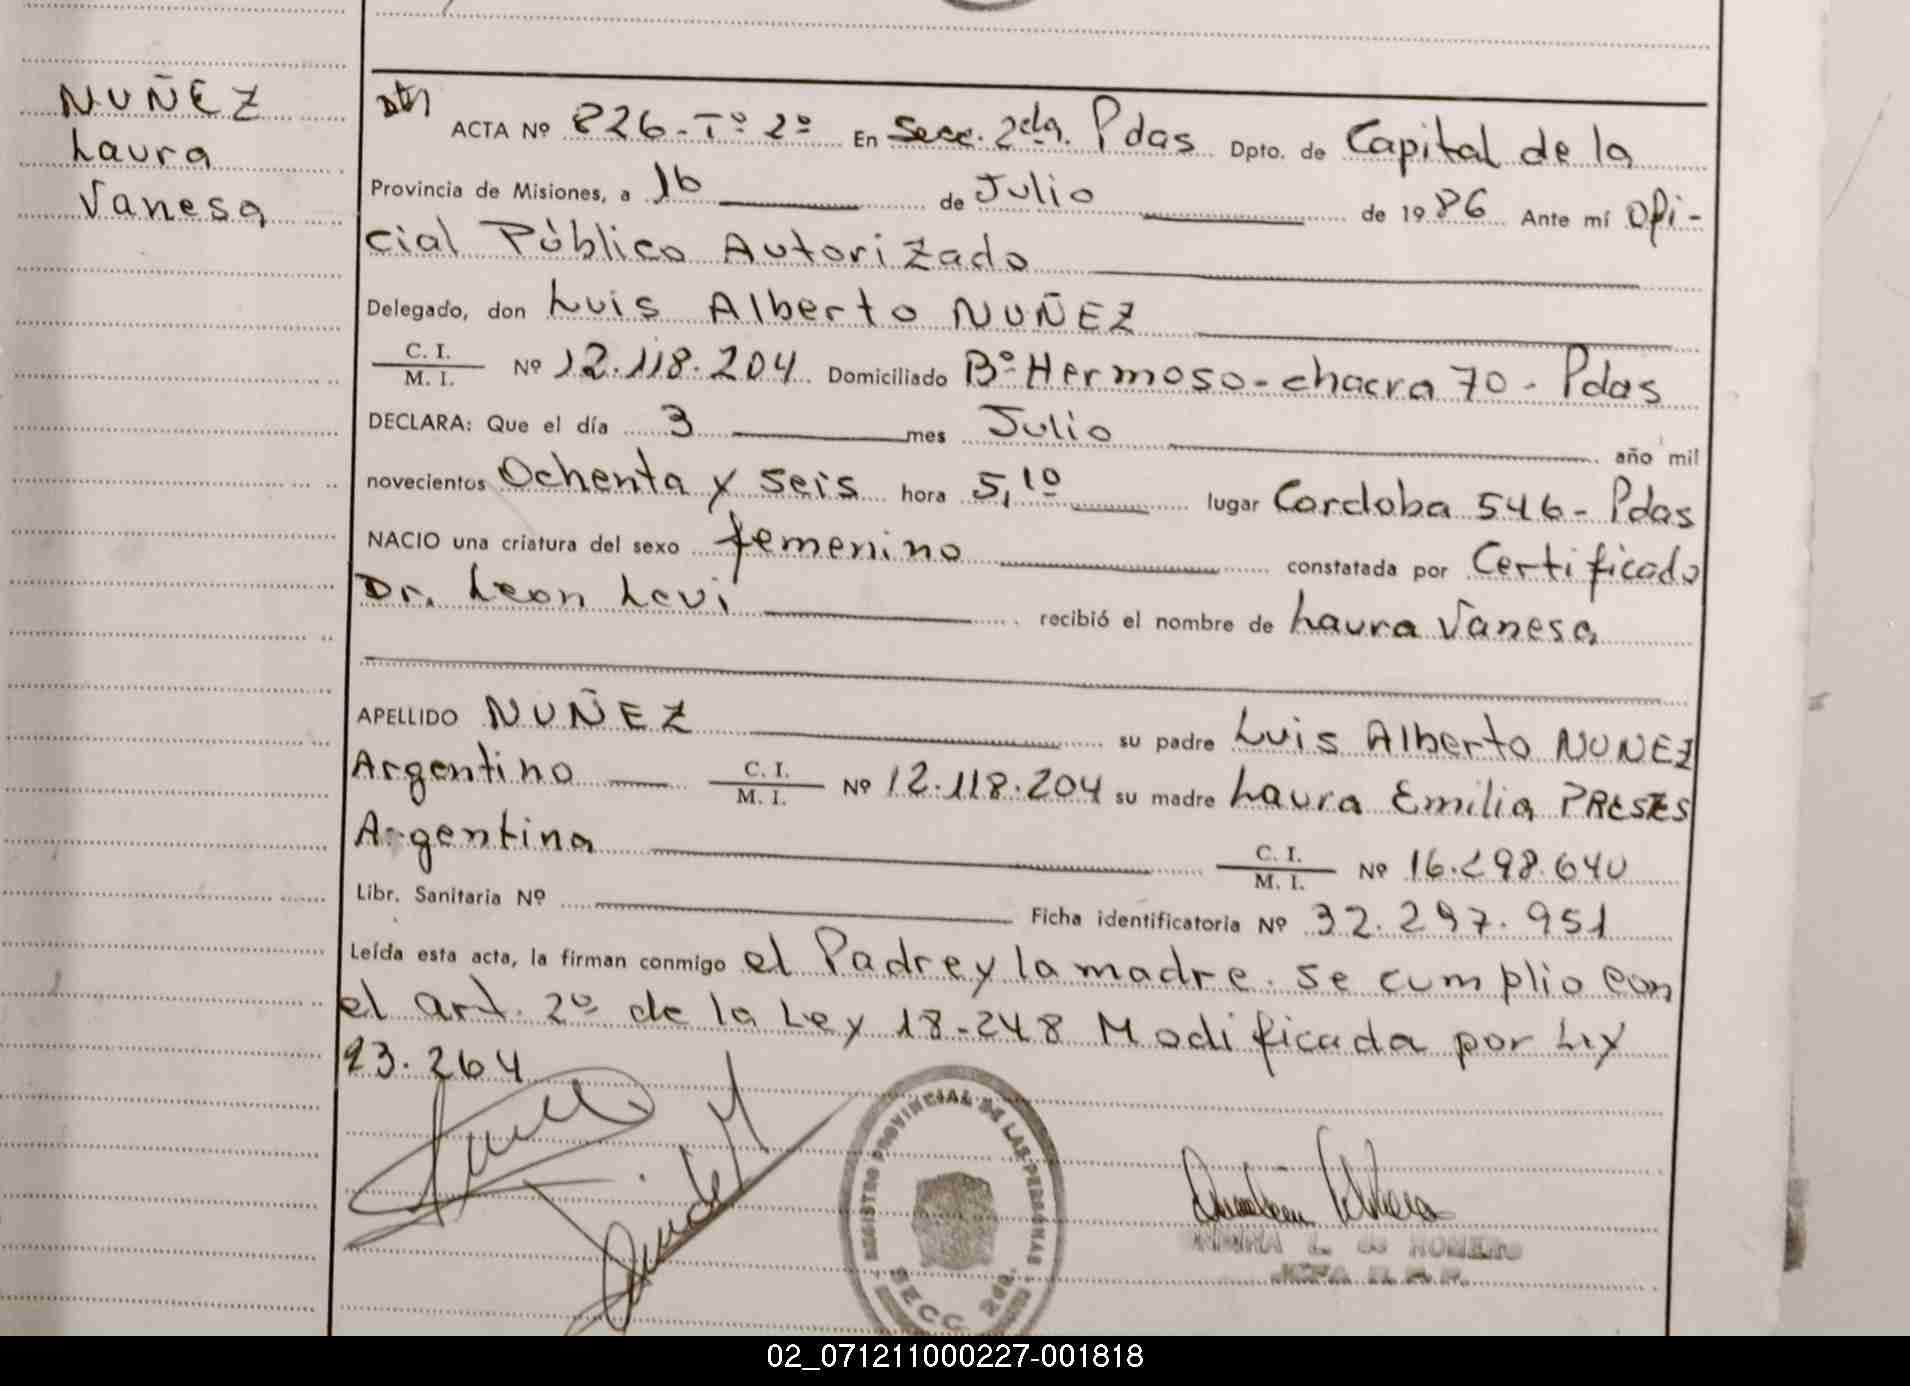 NUÑEZ
Laura
Vanesa
ACTA Nº 826-Tº 2º En Secc. 2da. Pdas Dpto. de Capital de la
Provincia de Misiones, a 16 de Julio de 1986 Ante mí Ofi-
cial Público Autorizado
Delegado, don Luis Alberto NUÑEZ
C. I.
M. I. Nº 12.118.204 Domiciliado Bº Hermoso-chacra 70- Pdas
DECLARA: Que el día 3 mes Julio año mil
novecientos Ochenta y seis hora 5,10 lugar Cordoba 546- Pdas
NACIO una criatura del sexo femenino constatada por Certificado
Dr. Leon Levi recibió el nombre de Laura Vanesa
APELLIDO NUÑEZ su padre Luis Alberto NUNEZ
Argentino C. I.
M. I. Nº 12.118.204 su madre Laura Emilia PRESTES
Argentina C. I.
M. I. Nº 16.298.640
Libr. Sanitaria Nº Ficha identificatoria Nº 32.297.951
Leída esta acta, la firman conmigo el Padre y la madre. Se cumplio con
el art. 2º de la Ley 18-248 Modificada por Ley
23.264
REGISTRO PROVINCIAL DE LAS PERSONAS
SECC. 2da.
L. de ROMERO
02_071211000227-001818